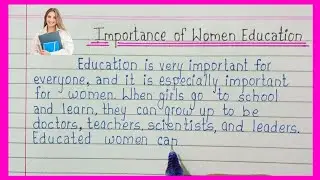 Importance of Women Education
Education is very important for
everyone, and it is especially important
for women. When girls go to school
and learn, they can grow up to be
doctors, teachers, scientists, and leaders.
Educated women can